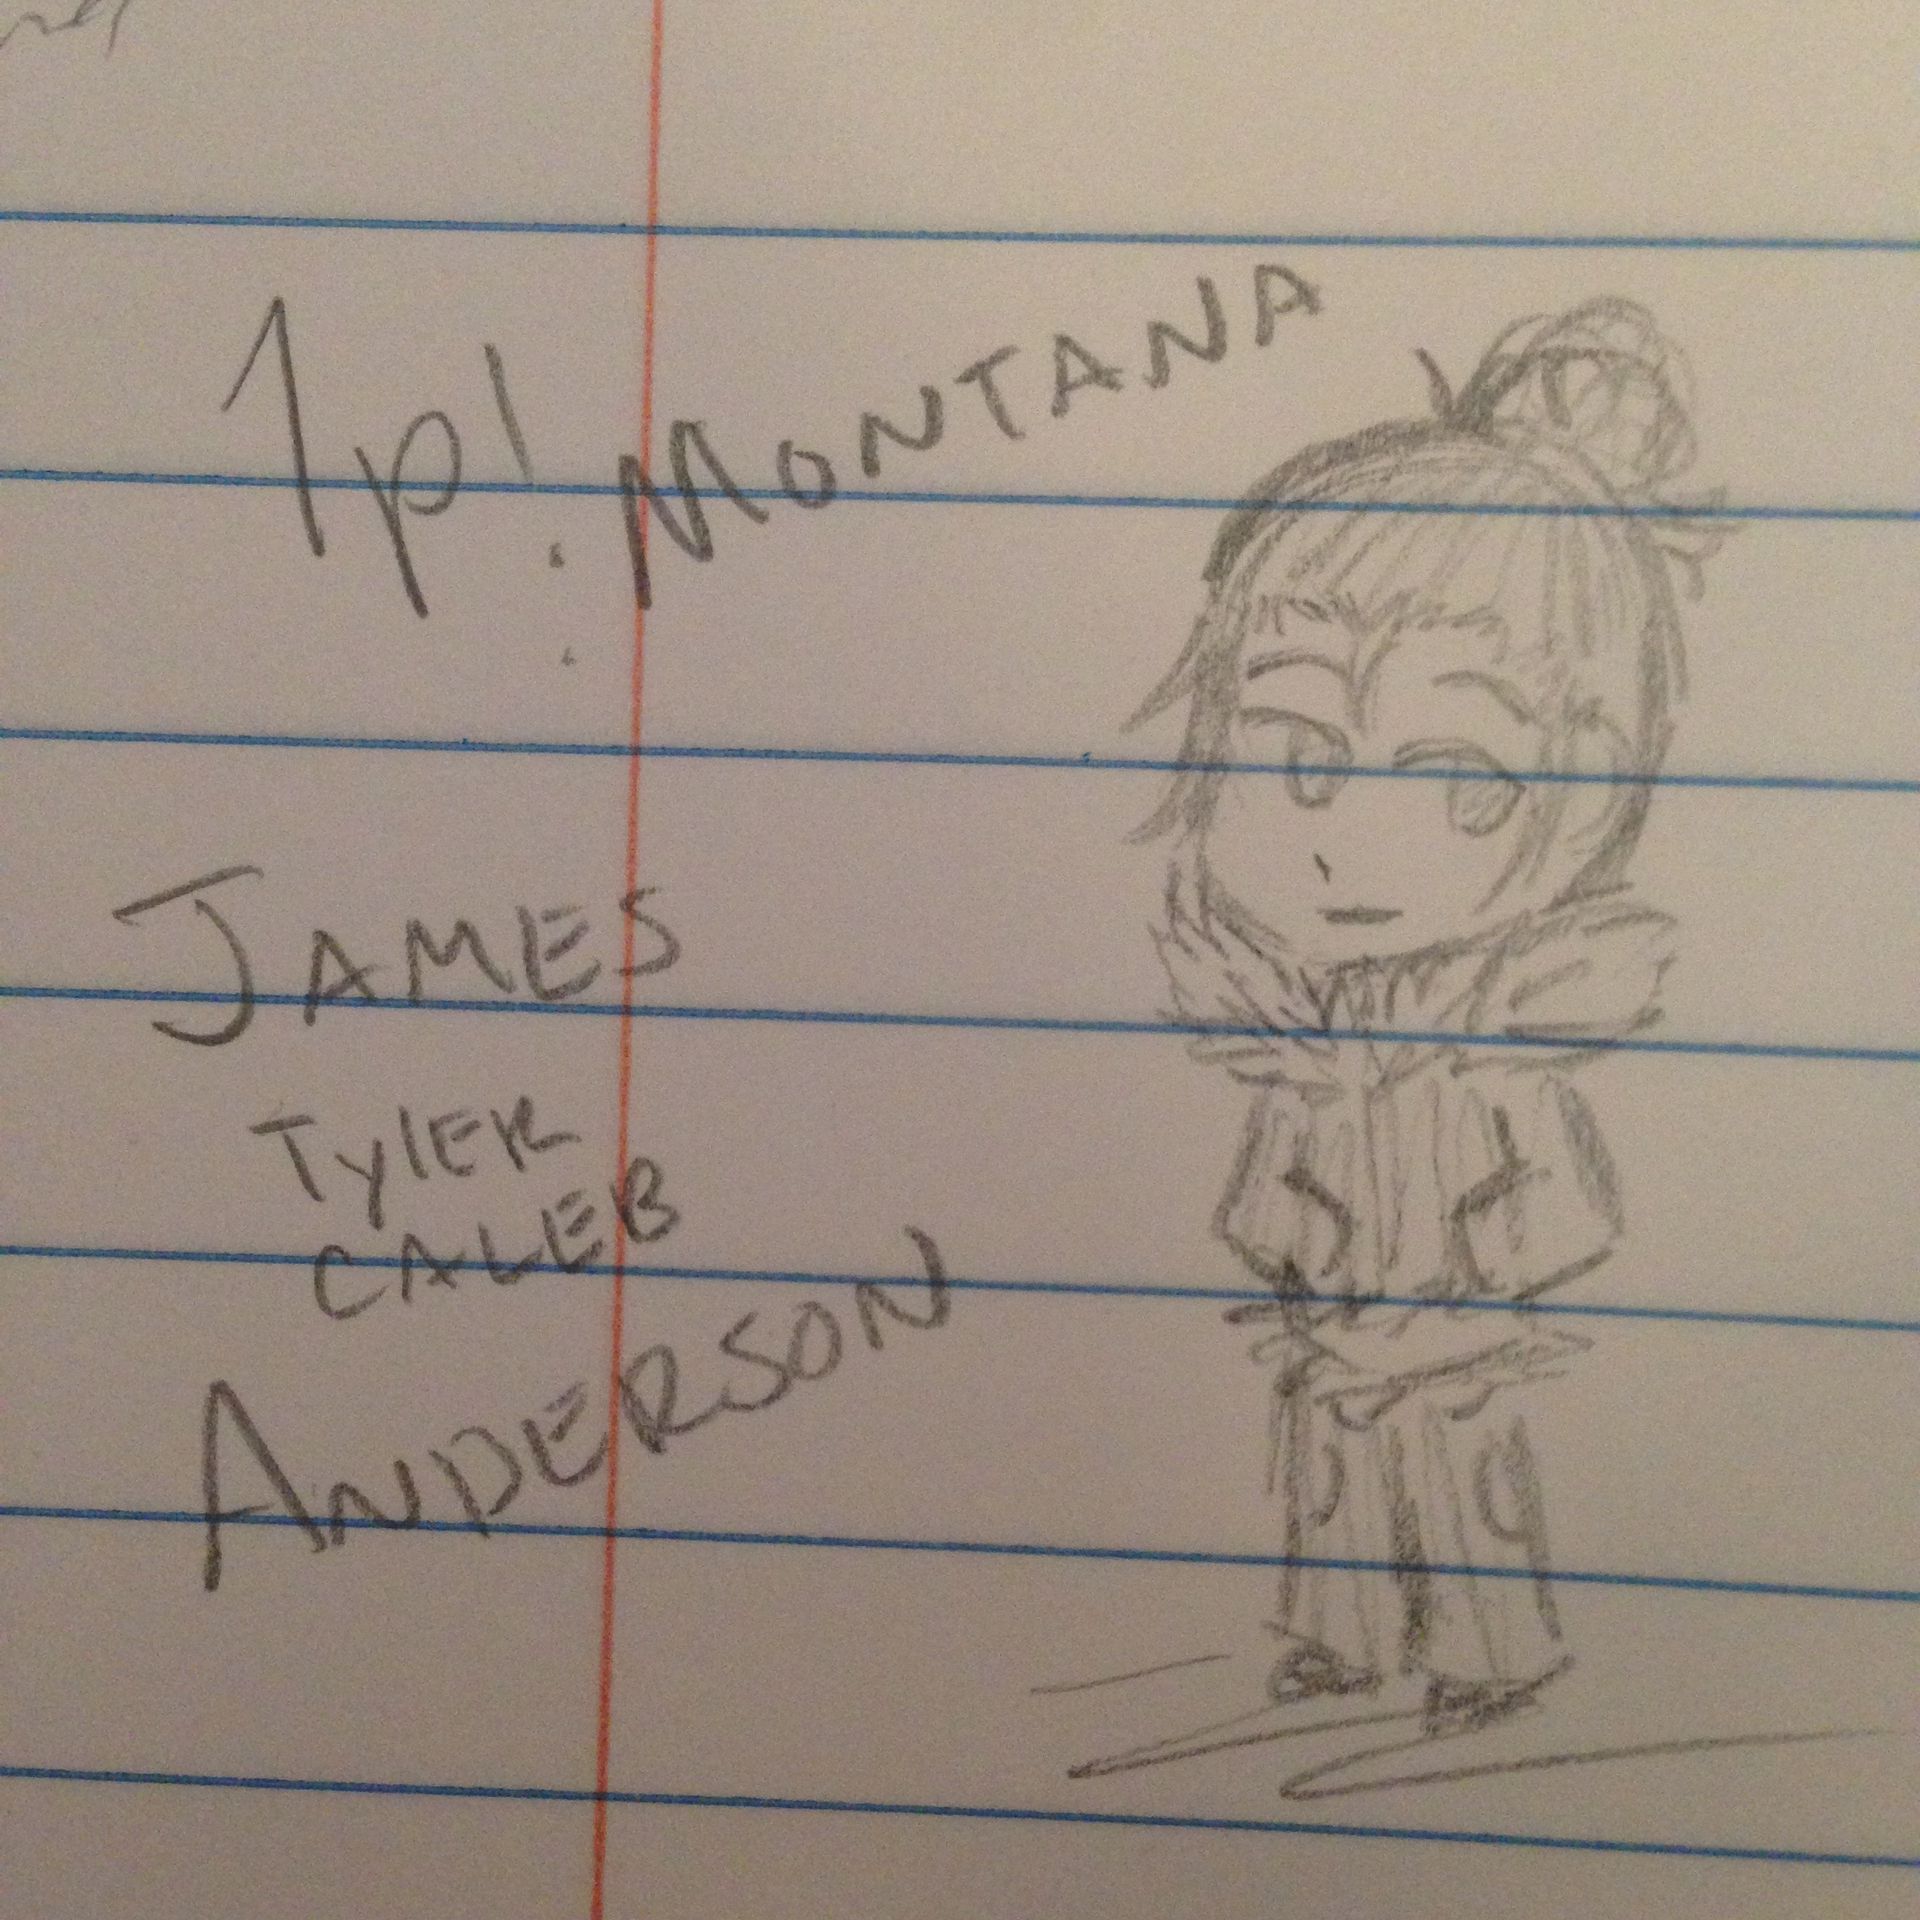 1p! MONTANA
JAMES
TYLER
CALEB
ANDERSON